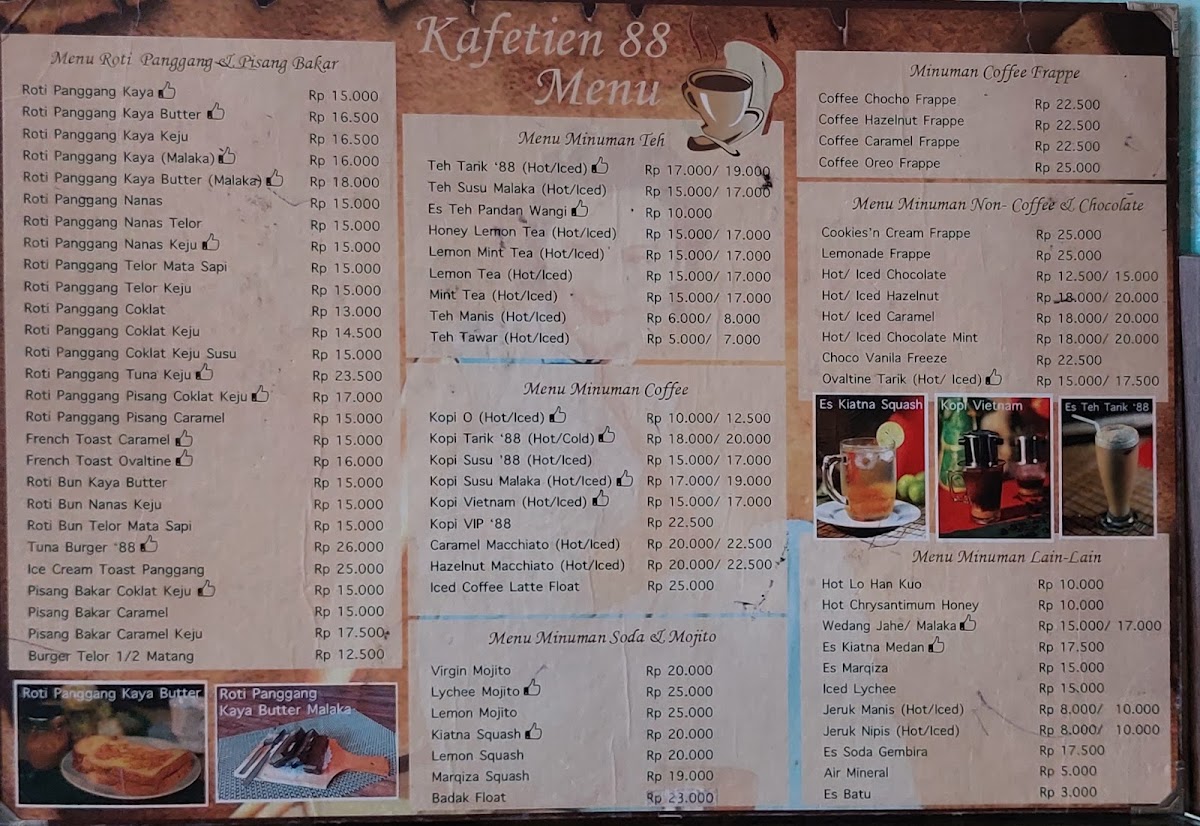 Kafetien 88
Menu
Menu Roti Panggang & Pisang Bakar
Roti Panggang Kaya Rp 15.000
Roti Panggang Kaya Butter Rp 16.500
Roti Panggang Kaya Keju Rp 16.500
Roti Panggang Kaya (Malaka) Rp 16.000
Roti Panggang Kaya Butter (Malaka) Rp 18.000
Roti Panggang Nanas Rp 15.000
Roti Panggang Nanas Telor Rp 15.000
Roti Panggang Nanas Keju Rp 15.000
Roti Panggang Telor Mata Sapi Rp 15.000
Roti Panggang Telor Keju Rp 15.000
Roti Panggang Coklat Rp 13.000
Roti Panggang Coklat Keju Rp 14.500
Roti Panggang Coklat Keju Susu Rp 15.000
Roti Panggang Tuna Keju Rp 23.500
Roti Panggang Pisang Coklat Keju Rp 17.000
Roti Panggang Pisang Caramel Rp 15.000
French Toast Caramel Rp 15.000
French Toast Ovaltine Rp 16.000
Roti Bun Kaya Butter Rp 15.000
Roti Bun Nanas Keju Rp 15.000
Roti Bun Telor Mata Sapi Rp 15.000
Tuna Burger '88 Rp 26.000
Ice Cream Toast Panggang Rp 25.000
Pisang Bakar Coklat Keju Rp 15.000
Pisang Bakar Caramel Rp 15.000
Pisang Bakar Caramel Keju Rp 17.500
Burger Telor 1/2 Matang Rp 12.500
Roti Panggang Kaya Butter
Roti Panggang
Kaya Butter Malaka
Menu Minuman Teh
Teh Tarik '88 (Hot/Iced) Rp 17.000/ 19.000
Teh Susu Malaka (Hot/Iced) Rp 15.000/ 17.000
Es Teh Pandan Wangi Rp 10.000
Honey Lemon Tea (Hot/Iced) Rp 15.000/ 17.000
Lemon Mint Tea (Hot/Iced) Rp 15.000/ 17.000
Lemon Tea (Hot/Iced) Rp 15.000/ 17.000
Mint Tea (Hot/Iced) Rp 15.000/ 17.000
Teh Manis (Hot/Iced) Rp 6.000/ 8.000
Teh Tawar (Hot/Iced) Rp 5.000/ 7.000
Menu Minuman Coffee
Kopi O (Hot/Iced) Rp 10.000/ 12.500
Kopi Tarik '88 (Hot/Cold) Rp 18.000/ 20.000
Kopi Susu '88 (Hot/Iced) Rp 15.000/ 17.000
Kopi Susu Malaka (Hot/Iced) Rp 17.000/ 19.000
Kopi Vietnam (Hot/Iced) Rp 15.000/ 17.000
Kopi VIP '88 Rp 22.500
Caramel Macchiato (Hot/Iced) Rp 20.000/ 22.500
Hazelnut Macchiato (Hot/Iced) Rp 20.000/ 22.500
Iced Coffee Latte Float Rp 25.000
Menu Minuman Soda & Mojito
Virgin Mojito Rp 20.000
Lychee Mojito Rp 25.000
Lemon Mojito Rp 25.000
Kiatna Squash Rp 20.000
Lemon Squash Rp 20.000
Marqiza Squash Rp 19.000
Badak Float Rp 23.000
Minuman Coffee Frappe
Coffee Chocho Frappe Rp 22.500
Coffee Hazelnut Frappe Rp 22.500
Coffee Caramel Frappe Rp 22.500
Coffee Oreo Frappe Rp 25.000
Menu Minuman Non- Coffee & Chocolate
Cookies'n Cream Frappe Rp 25.000
Lemonade Frappe Rp 25.000
Hot/ Iced Chocolate Rp 12.500/ 15.000
Hot/ Iced Hazelnut Rp 18.000/ 20.000
Hot/ Iced Caramel Rp 18.000/ 20.000
Hot/ Iced Chocolate Mint Rp 18.000/ 20.000
Choco Vanila Freeze Rp 22.500
Ovaltine Tarik (Hot/ Iced) Rp 15.000/ 17.500
Es Kiatna Squash
Kopi Vietnam
Es Teh Tarik '88
Menu Minuman Lain-Lain
Hot Lo Han Kuo Rp 10.000
Hot Chrysantimum Honey Rp 10.000
Wedang Jahe/ Malaka Rp 15.000/ 17.000
Es Kiatna Medan Rp 17.500
Es Marqiza Rp 15.000
Iced Lychee Rp 15.000
Jeruk Manis (Hot/Iced) Rp 8.000/ 10.000
Jeruk Nipis (Hot/Iced) Rp 8.000/ 10.000
Es Soda Gembira Rp 17.500
Air Mineral Rp 5.000
Es Batu Rp 3.000